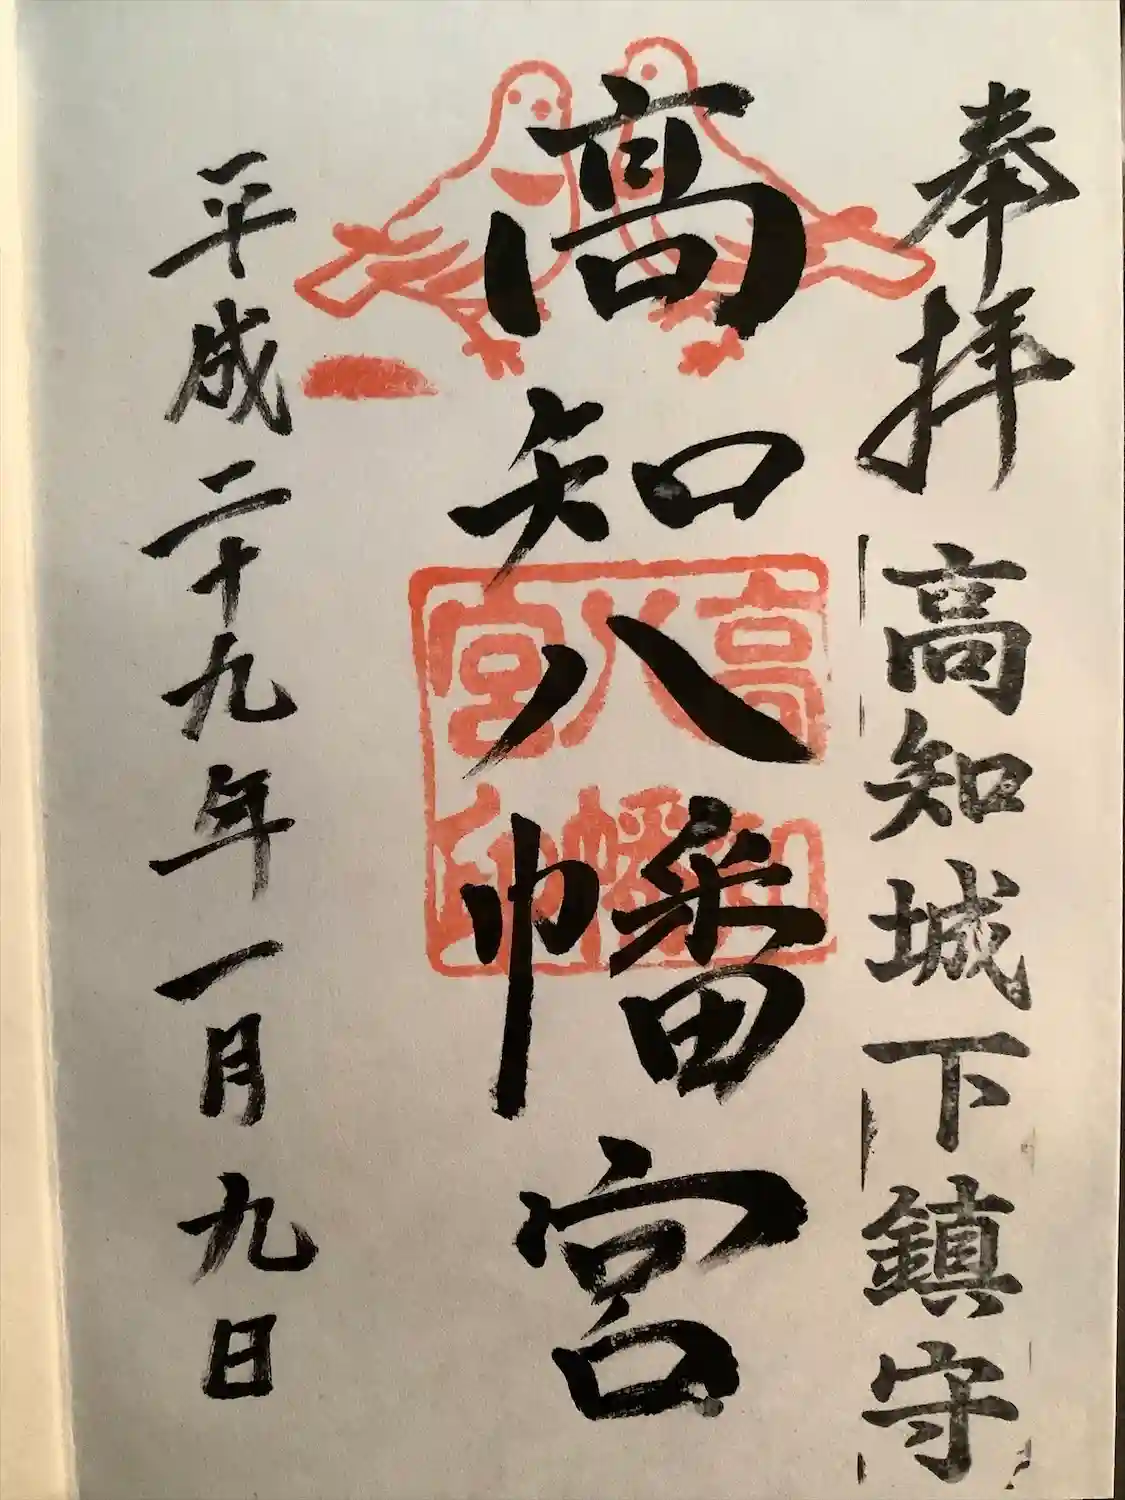 奉拝
高知城下鎮守
高知八幡宮
高知八幡宮印
平成二十九年一月九日